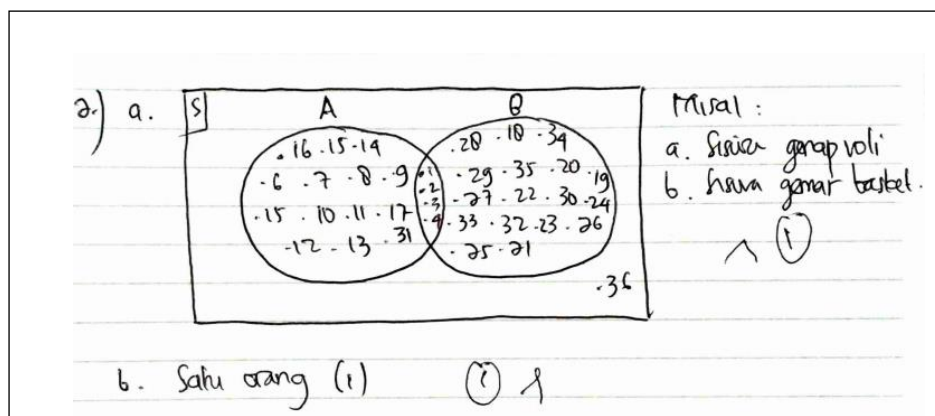 2.) a.
S A B
.16 .15 .14
.6 .7 .8 .9
.15 .10 .11 .17
.12 . 13 .31
.1
.2
.3
.4
.28 .18 .34
.29 .35 .20 .19
.27 .22 .30 .24
.33 .32 .23 .26
.25 .21
.36
Misal :
a. Siswa gemar voli
b. Siswa gemar basket.
1
b. Satu orang (1) 1